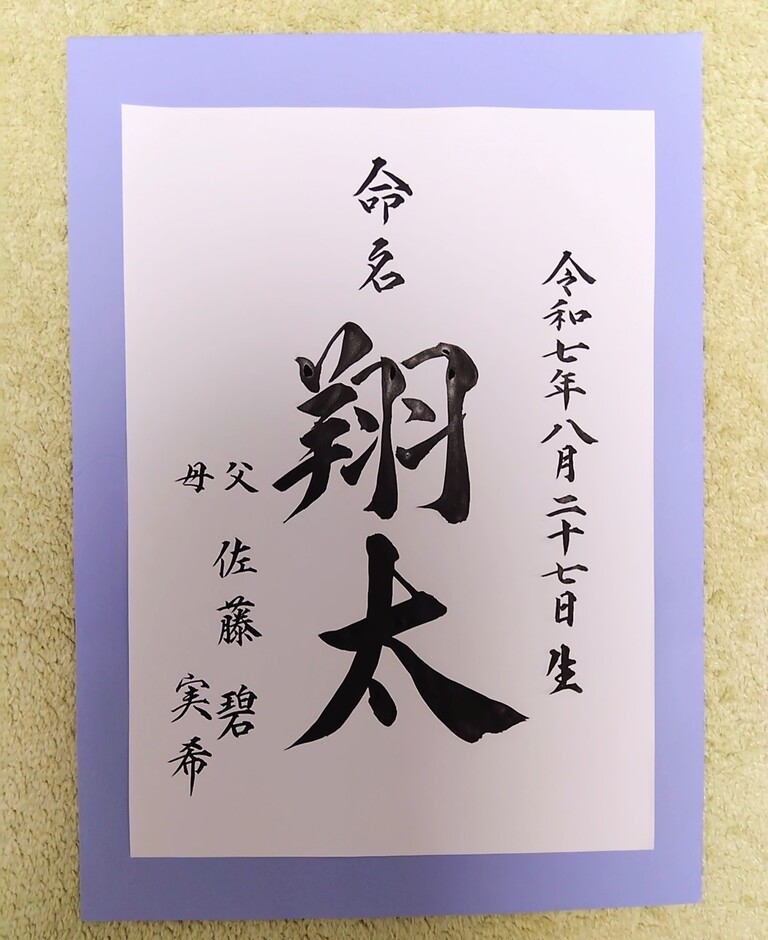 令和七年八月二十七日生
命名
翔太
父 佐藤 碧
母 実希